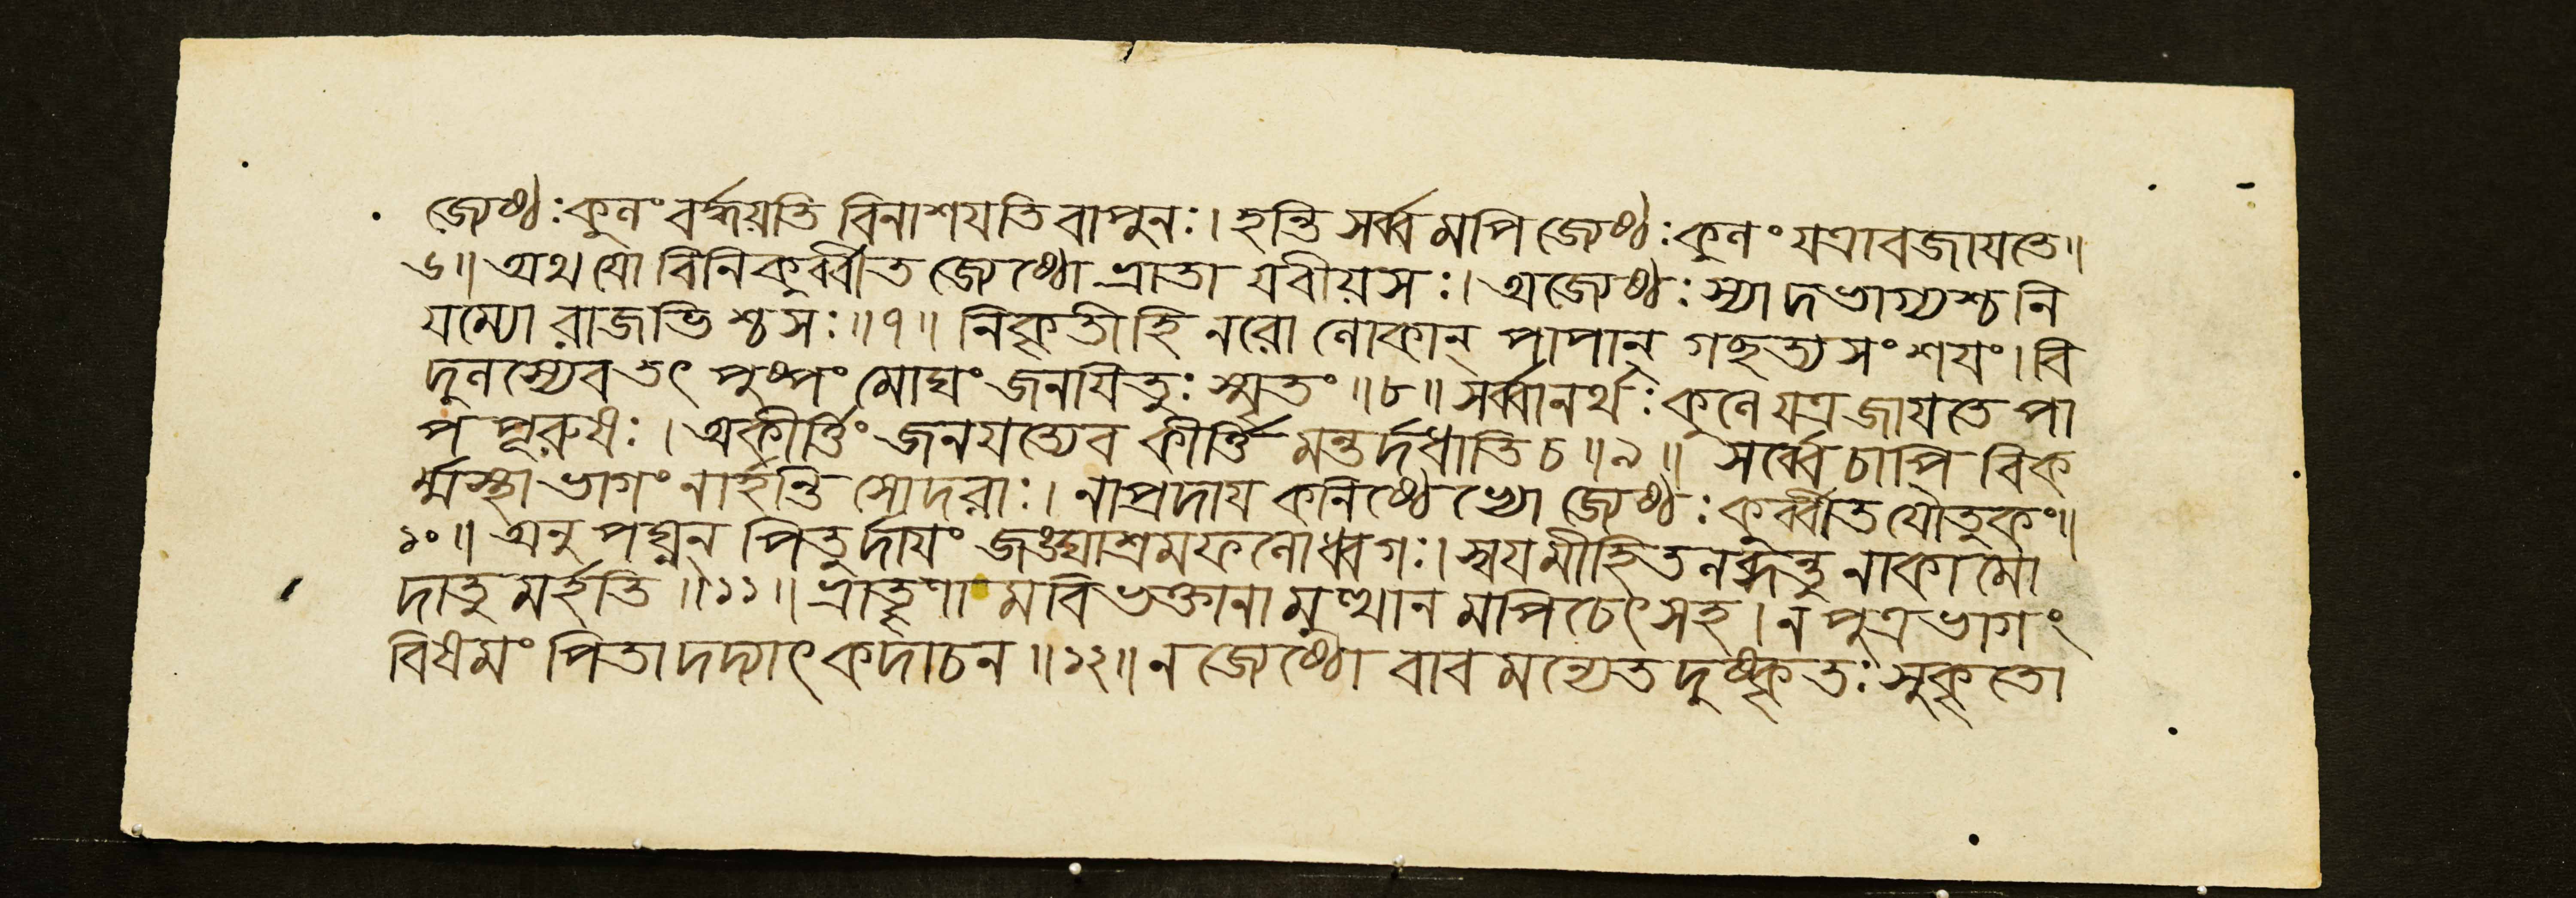 জ্যেষ্ঠঃ কুলং বর্দ্ধয়তি বিনাশযতি বাপুনঃ। হন্তি সর্ব্বমপি জ্যেষ্ঠঃ কুলং যত্রাবজাযতে॥
৬॥ অথ যো বিনিকুর্ব্বীত জ্যেষ্ঠো ভ্রাতা যবীয়সঃ। অজ্যেষ্ঠঃ স্যাদভাগ্যশ্চ নি
যম্যো রাজভিশ্চ সঃ॥৭॥ নিকৃতী হি নরো লোকান্ পাপান্ গচ্ছত্যসংশযং। বি
দুলস্যেব তৎ পুষ্পং মোঘং জনযিতুঃ স্মৃতং॥৮॥ সর্ব্বানর্থঃ কুলে যত্র জাযতে পা
পপূরুষঃ। অকীর্ত্তিং জনযত্যেব কীর্ত্তিমন্তর্দধাতি চ॥৯॥ সর্ব্বে চাপি বিক
র্ম্মস্থা ভাগং নার্হন্তি সোদরাঃ। নাপ্রদায কনিষ্ঠেভ্যো জ্যেষ্ঠঃ কুর্ব্বীত যৌতুকং॥
১০॥ অনুপঘ্নন্ পিতুর্দাযং জঙ্ঘাশ্রমফলোধ্বগঃ। স্বযমীহিতলব্ধন্তু নাকামো
দাতুমর্হতি॥১১॥ ভ্রাতৄণামবিভক্তানামুত্থানমপি চেৎ সহ। ন পুত্রভাগং
বিষমং পিতা দদ্যাৎ কদাচন॥১২॥ ন জ্যেষ্ঠো বাবমন্যেত দুষ্কৃতঃ সুকৃতো